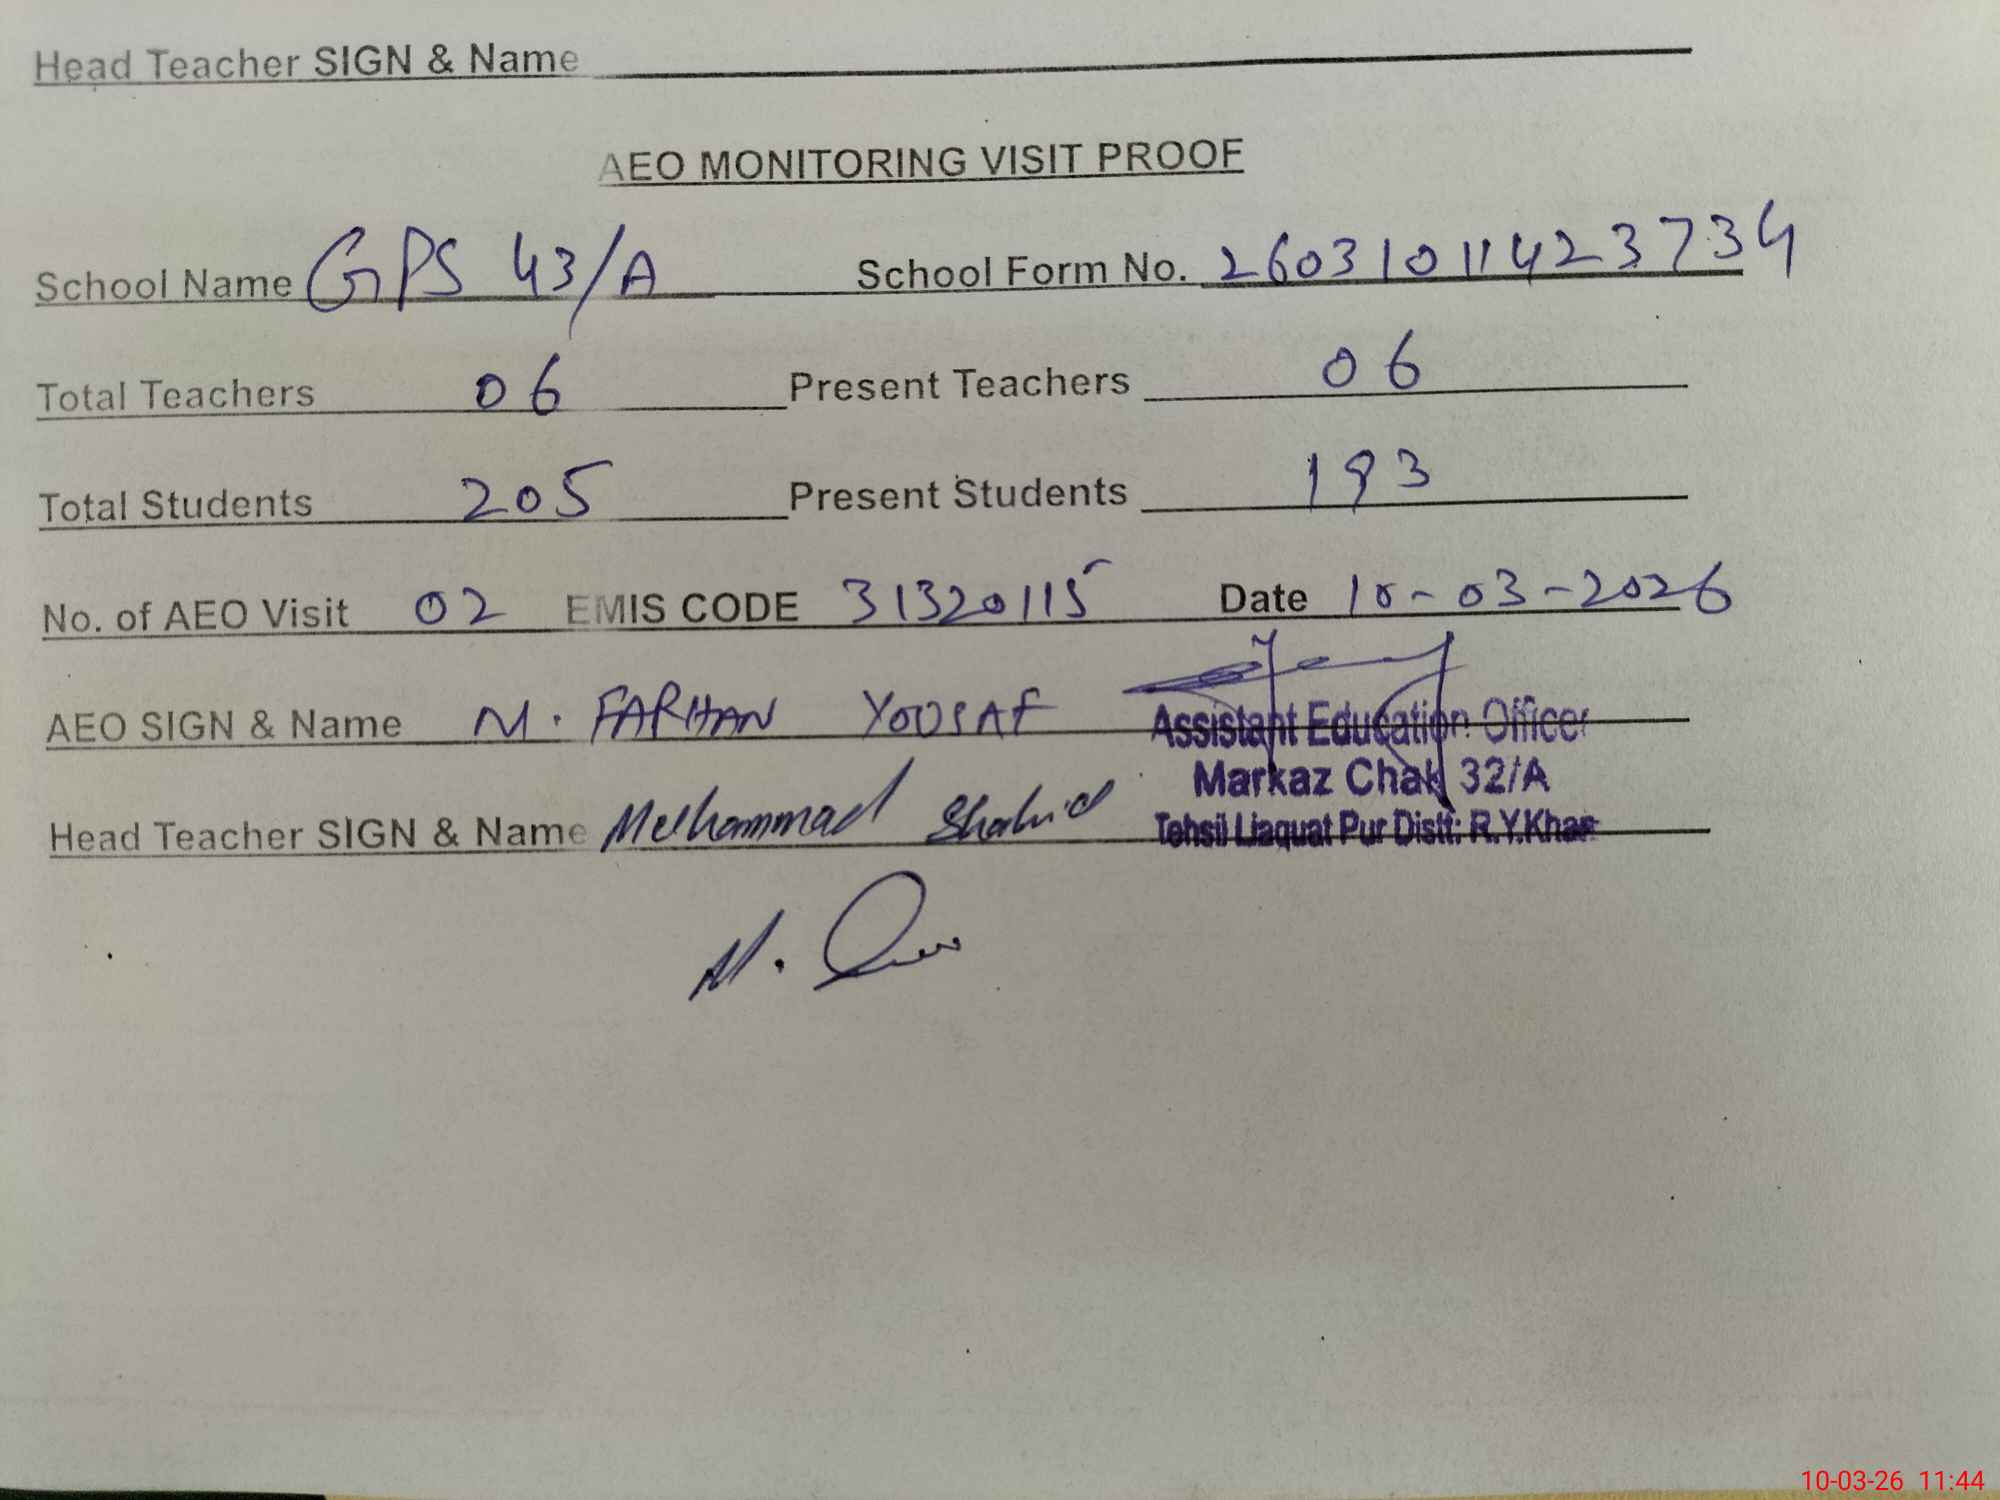 Head Teacher SIGN & Name
AEO MONITORING VISIT PROOF
School Name GPS 43/A School Form No. 26031011423734
Total Teachers 06 Present Teachers 06
Total Students 205 Present Students 193
No. of AEO Visit 02 EMIS CODE 31320115 Date 10-03-2026
AEO SIGN & Name M. FARHAN YOUSAF
Assistant Education Officer
Markaz Chak 32/A
Tehsil Liaquat Pur Distt: R.Y.Khan
Head Teacher SIGN & Name Muhammad Shahid
M.
10-03-26 11:44